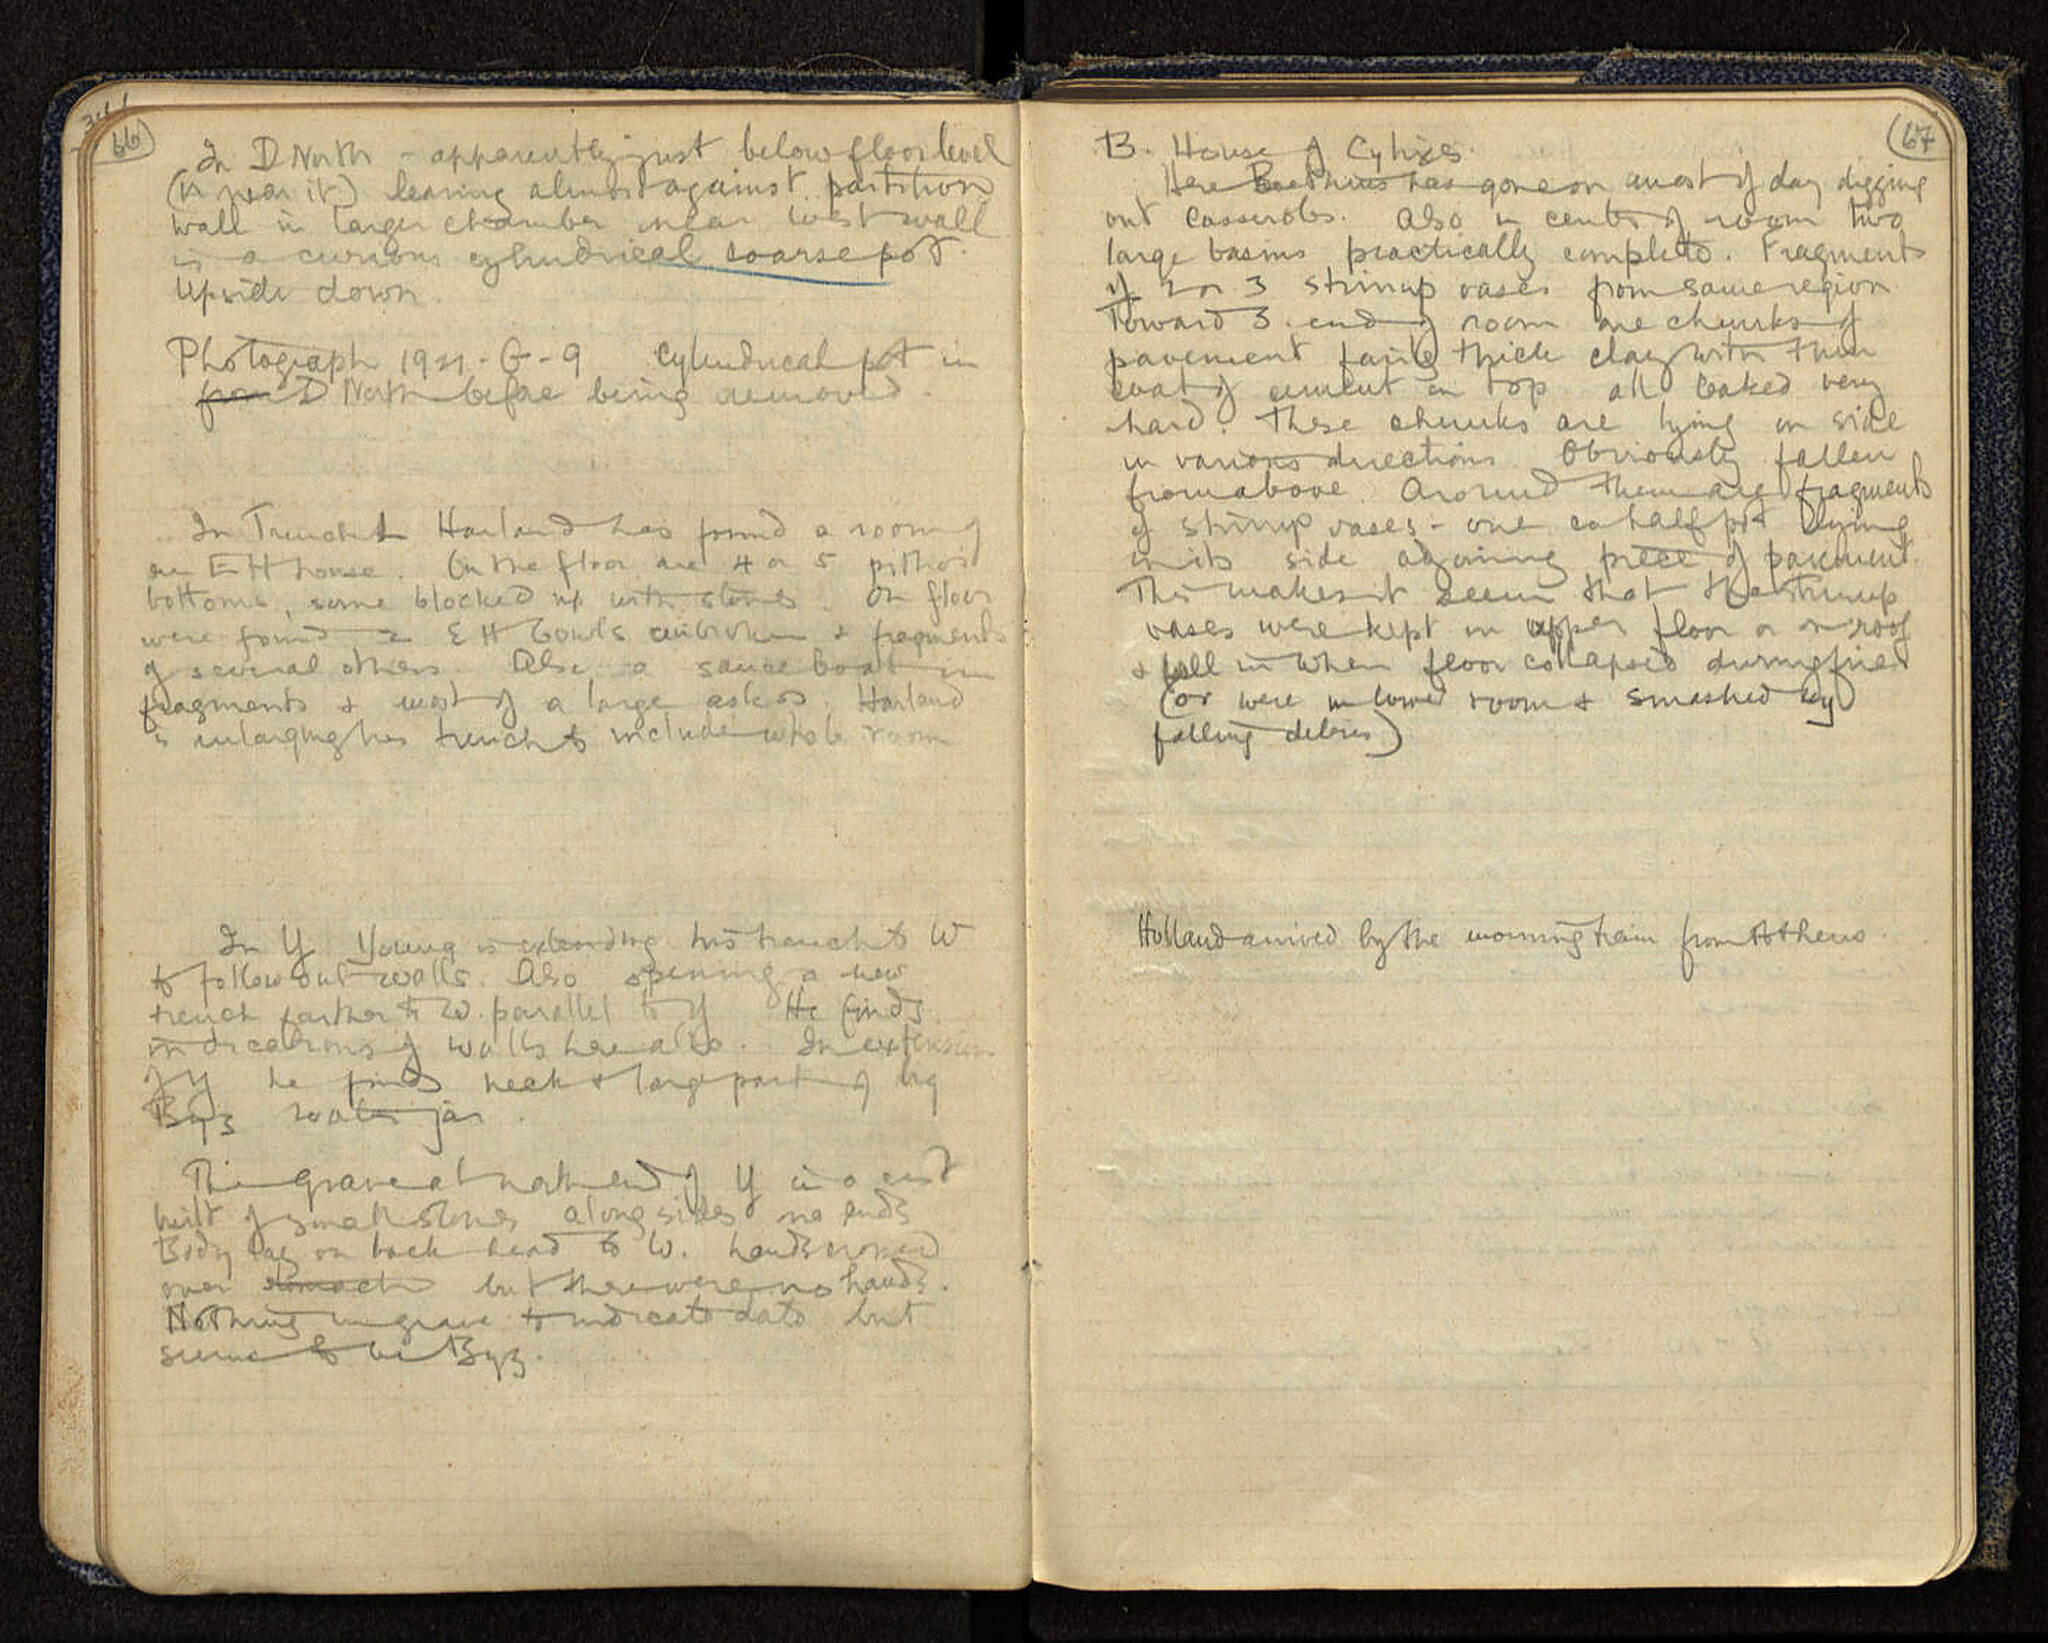 66
In D North - apparently just below floor level
(or near it) leaning almost against partition
wall in larger chamber near west wall
is a curious cylindrical coarse pot.
Upside down.
Photograph 1921-G-9 Cylindrical pot in
from D North before being removed.
In Trench L Harland has found a room of
an EH house. On the floor are 4 or 5 pithoi
bottoms, some blocked up with stones. On floor
were found 2 EH bowls unbroken & fragments
of several others. Also a sauce boat in
fragments & most of a large askos. Harland
is enlarging his trench to include whole room
In Y Young is extending his trench to W
to follow out walls. Also opening a new
trench farther to W. parallel to Y He finds
indications of walls here also. In extension
of Y he finds neck & large part of big
Byz water jar.
The grave at north end of Y is a cist
built of small stones along sides no ends
Body lay on back head to W. hands crossed
over stomach but there were no hands.
Nothing in grave to indicate date but
seems to be Byz.
67
B. House of Cylixes.
Here Boethius has gone on most of day digging
out casseroles. Also in center of room two
large basins practically complete. Fragments
of 2 or 3 stirrup vases from same region
Toward S. end of room are chunks of
pavement fairly thick clay with thin
coat of cement on top all baked very
hard. These chunks are lying on side
in various directions Obviously fallen
from above. Around them are fragments
of stirrup vases - one ca half pot lying
on its side adjoining piece of pavement.
This makes it seem that the stirrup
vases were kept in upper floor or on roof
& fell in when floor collapsed during fire
(or were in lower room & smashed by
falling debris)
Holland arrived by the morning train from Athens.